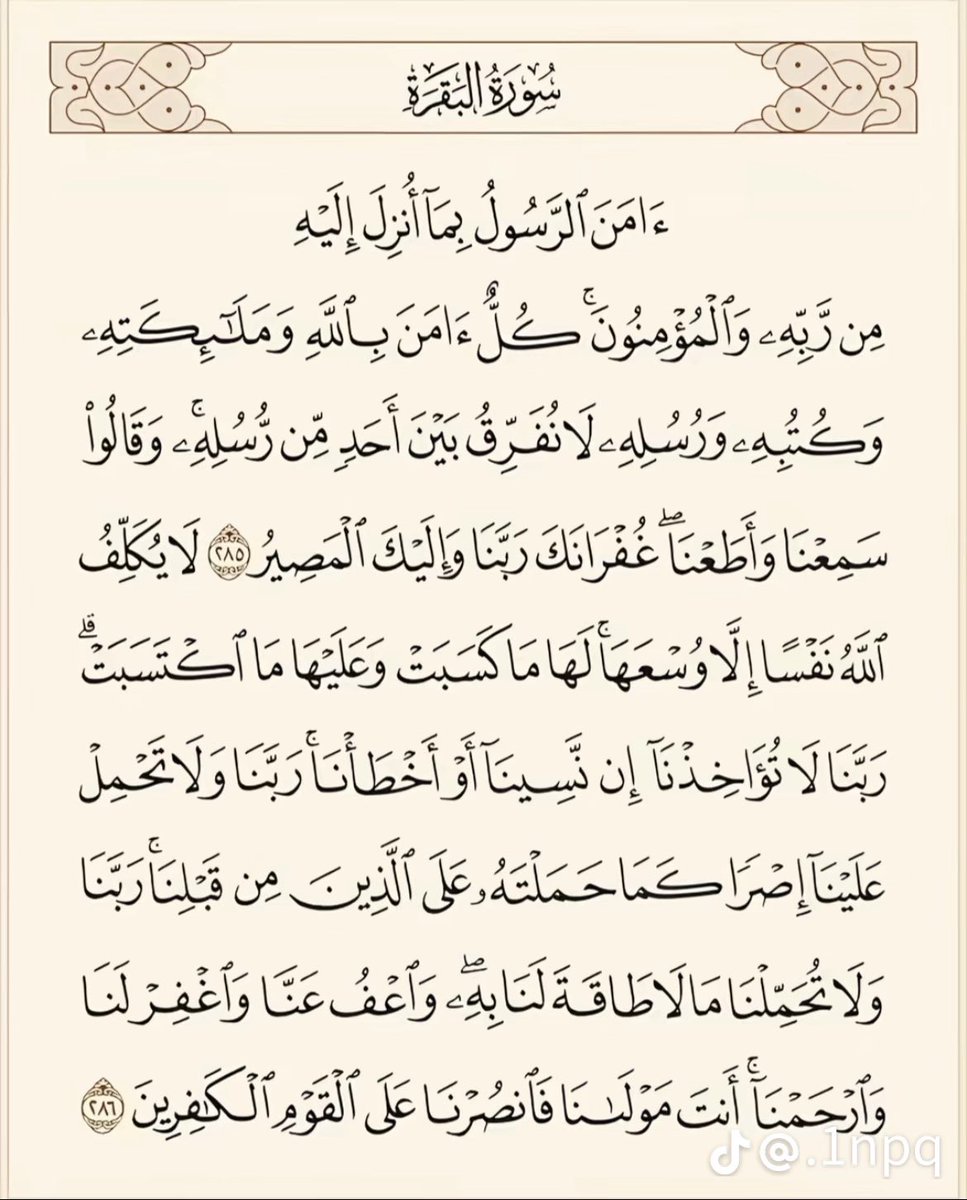 سُورَةُ البَقَرَةِ
ءَامَنَ ٱلرَّسُولُ بِمَآ أُنزِلَ إِلَيْهِ
مِن رَّبِّهِۦ وَٱلْمُؤْمِنُونَ ۚ كُلٌّ ءَامَنَ بِٱللَّهِ وَمَلَـٰٓئِكَتِهِۦ
وَكُتُبِهِۦ وَرُسُلِهِۦ لَا نُفَرِّقُ بَيْنَ أَحَدٍ مِّن رُّسُلِهِۦ ۚ وَقَالُوا۟
سَمِعْنَا وَأَطَعْنَا ۖ غُفْرَانَكَ رَبَّنَا وَإِلَيْكَ ٱلْمَصِيرُ ٢٨٥ لَا يُكَلِّفُ
ٱللَّهُ نَفْسًا إِلَّا وُسْعَهَا ۚ لَهَا مَا كَسَبَتْ وَعَلَيْهَا مَا ٱكْتَسَبَتْ ۗ
رَبَّنَا لَا تُؤَاخِذْنَآ إِن نَّسِينَآ أَوْ أَخْطَأْنَا ۚ رَبَّنَا وَلَا تَحْمِلْ
عَلَيْنَآ إِصْرًا كَمَا حَمَلْتَهُۥ عَلَى ٱلَّذِينَ مِن قَبْلِنَا ۚ رَبَّنَا
وَلَا تُحَمِّلْنَا مَا لَا طَاقَةَ لَنَا بِهِۦ ۖ وَٱعْفُ عَنَّا وَٱغْفِرْ لَنَا
وَٱرْحَمْنَآ ۚ أَنتَ مَوْلَىٰنَا فَٱنصُرْنَا عَلَى ٱلْقَوْمِ ٱلْكَـٰفِرِينَ ٢٨٦
@.1npq